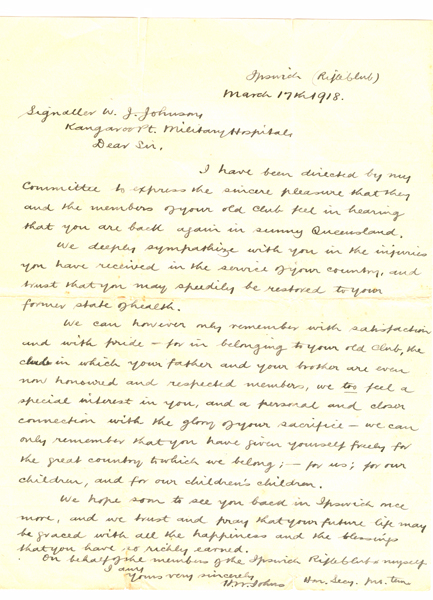 Ipswich (Rifle Club)
March 17th 1918.
Signaller W. J. Johnson,
Kangaroo Pt. Military Hospital,
Dear Sir,
I have been directed by my
Committee to express the sincere pleasure that they
and the members of your old Club feel in hearing
that you are back again in sunny Queensland.
We deeply sympathize with you in the injuries
you have received in the service of your country, and
trust that you may speedily be restored to your
former state of health.
We can however only remember with satisfaction
and with pride – for in belonging to your old Club, the
in which your father and your brother are even
now honoured and respected members, we too feel a
special interest in you, and a personal and closer
connection with the glory of your sacrifice – we can
only remember that you have given yourself freely for
the great country to which we belong; – for us; for our
children, and for our children's children.
We hope soon to see you back in Ipswich once
more, and we trust and pray that your future life may
be graced with all the happiness and the blessings
that you have so richly earned.
On behalf of the members of the Ipswich Rifle Club & myself
I am,
Yours very sincerely
Johns Hon. Secy. pro. tem